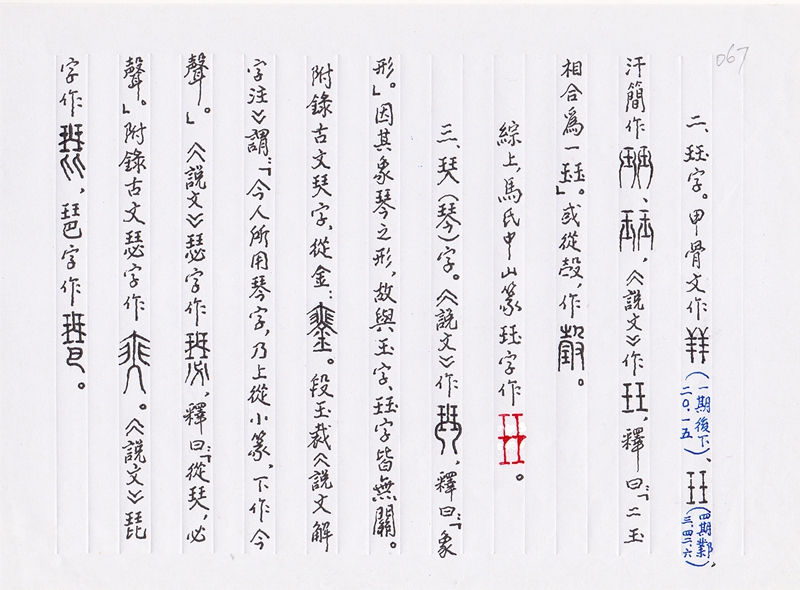 067
二、珏字。甲骨文作（一期後下二〇.一五）、（四期鄴，三.四二.六）
汗簡作、，《說文》作，釋曰：「二玉
相合爲一珏」。或從㱿，作。
綜上，馬氏中山篆珏字作。
三、珡（琴）字。《說文》作，釋曰：「象
形。」因其象琴之形，故與玉字、珏字皆無關。
附錄古文珡字，從金：。段玉裁《說文解
字注》謂：「今人所用琴字，乃上從小篆，下作今
聲。」《說文》瑟字作，釋曰：「從珡，必
聲。」附錄古文瑟字作。《說文》琵
字作，琶字作。